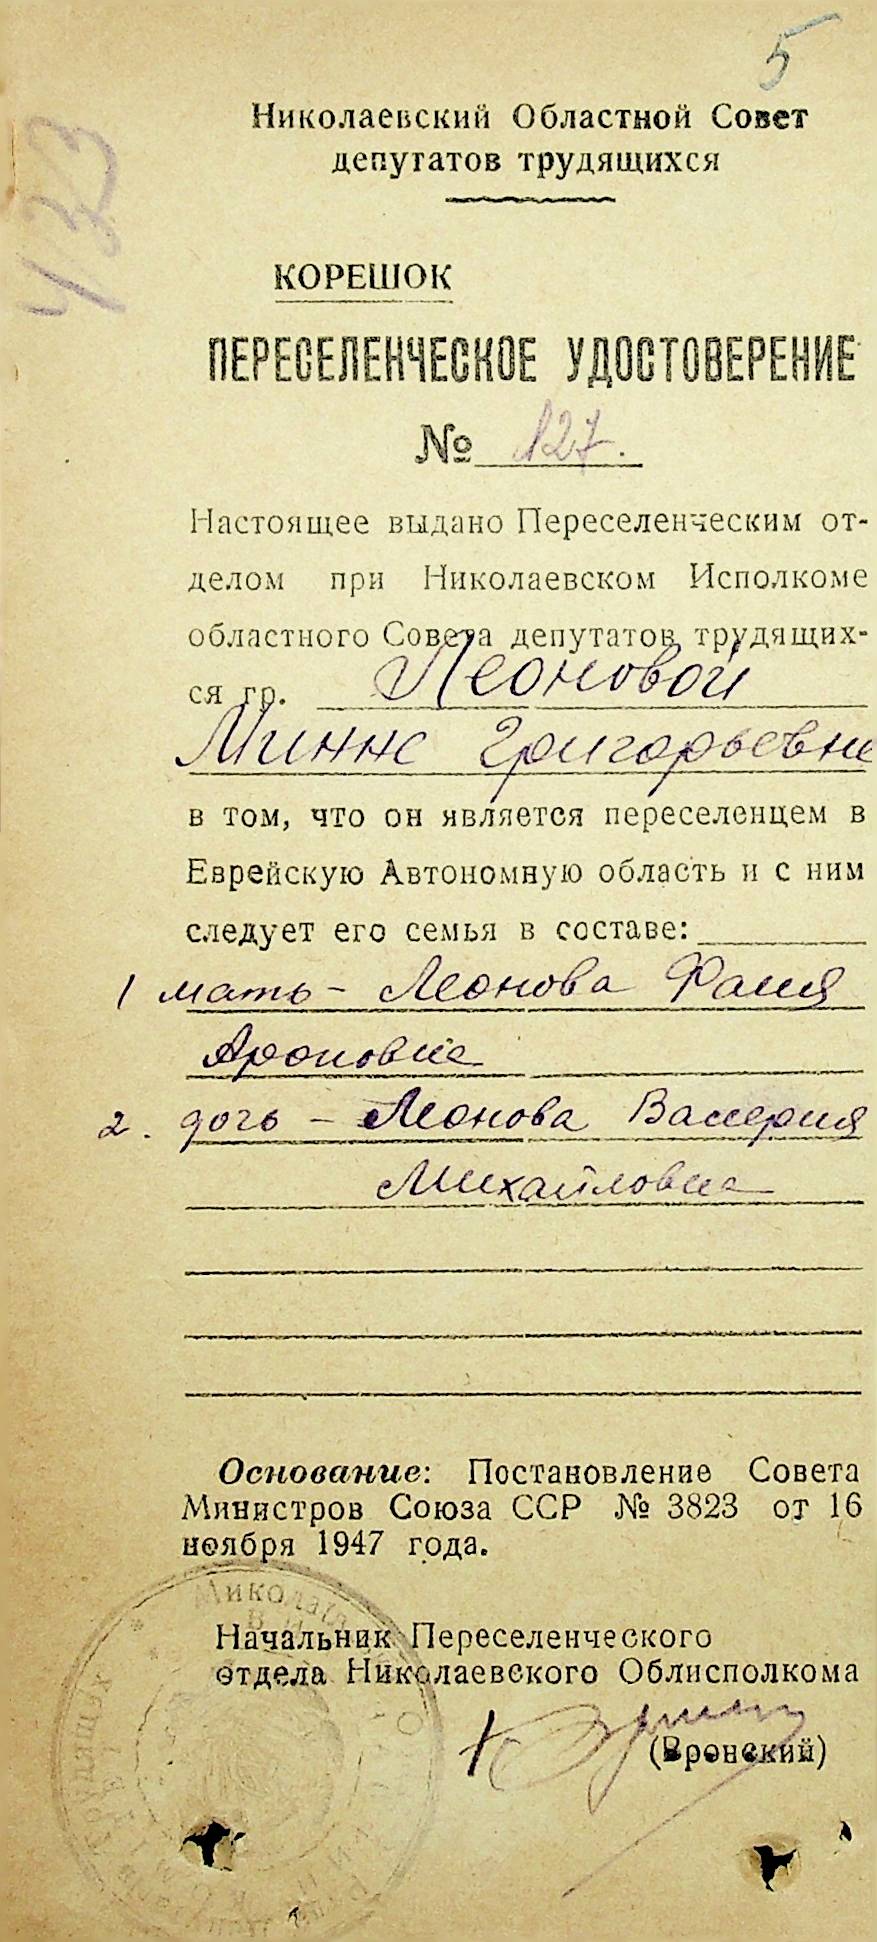 5
433
Николаевский Областной Совет
депутатов трудящихся
КОРЕШОК
ПЕРЕСЕЛЕНЧЕСКОЕ УДОСТОВЕРЕНИЕ
№ 127.
Настоящее выдано Переселенческим от-
делом при Николаевском Исполкоме
областного Совета депутатов трудящих-
ся гр. Леоновой
Минне Григорьевне
в том, что он является переселенцем в
Еврейскую Автономную область и с ним
следует его семья в составе:
1 мать - Леонова Фаня
Ароновна
2. дочь - Леонова Валерия
Михайловна
Основание: Постановление Совета
Министров Союза ССР № 3823 от 16
ноября 1947 года.
Начальник Переселенческого
отдела Николаевского Облисполкома
(Вронский)